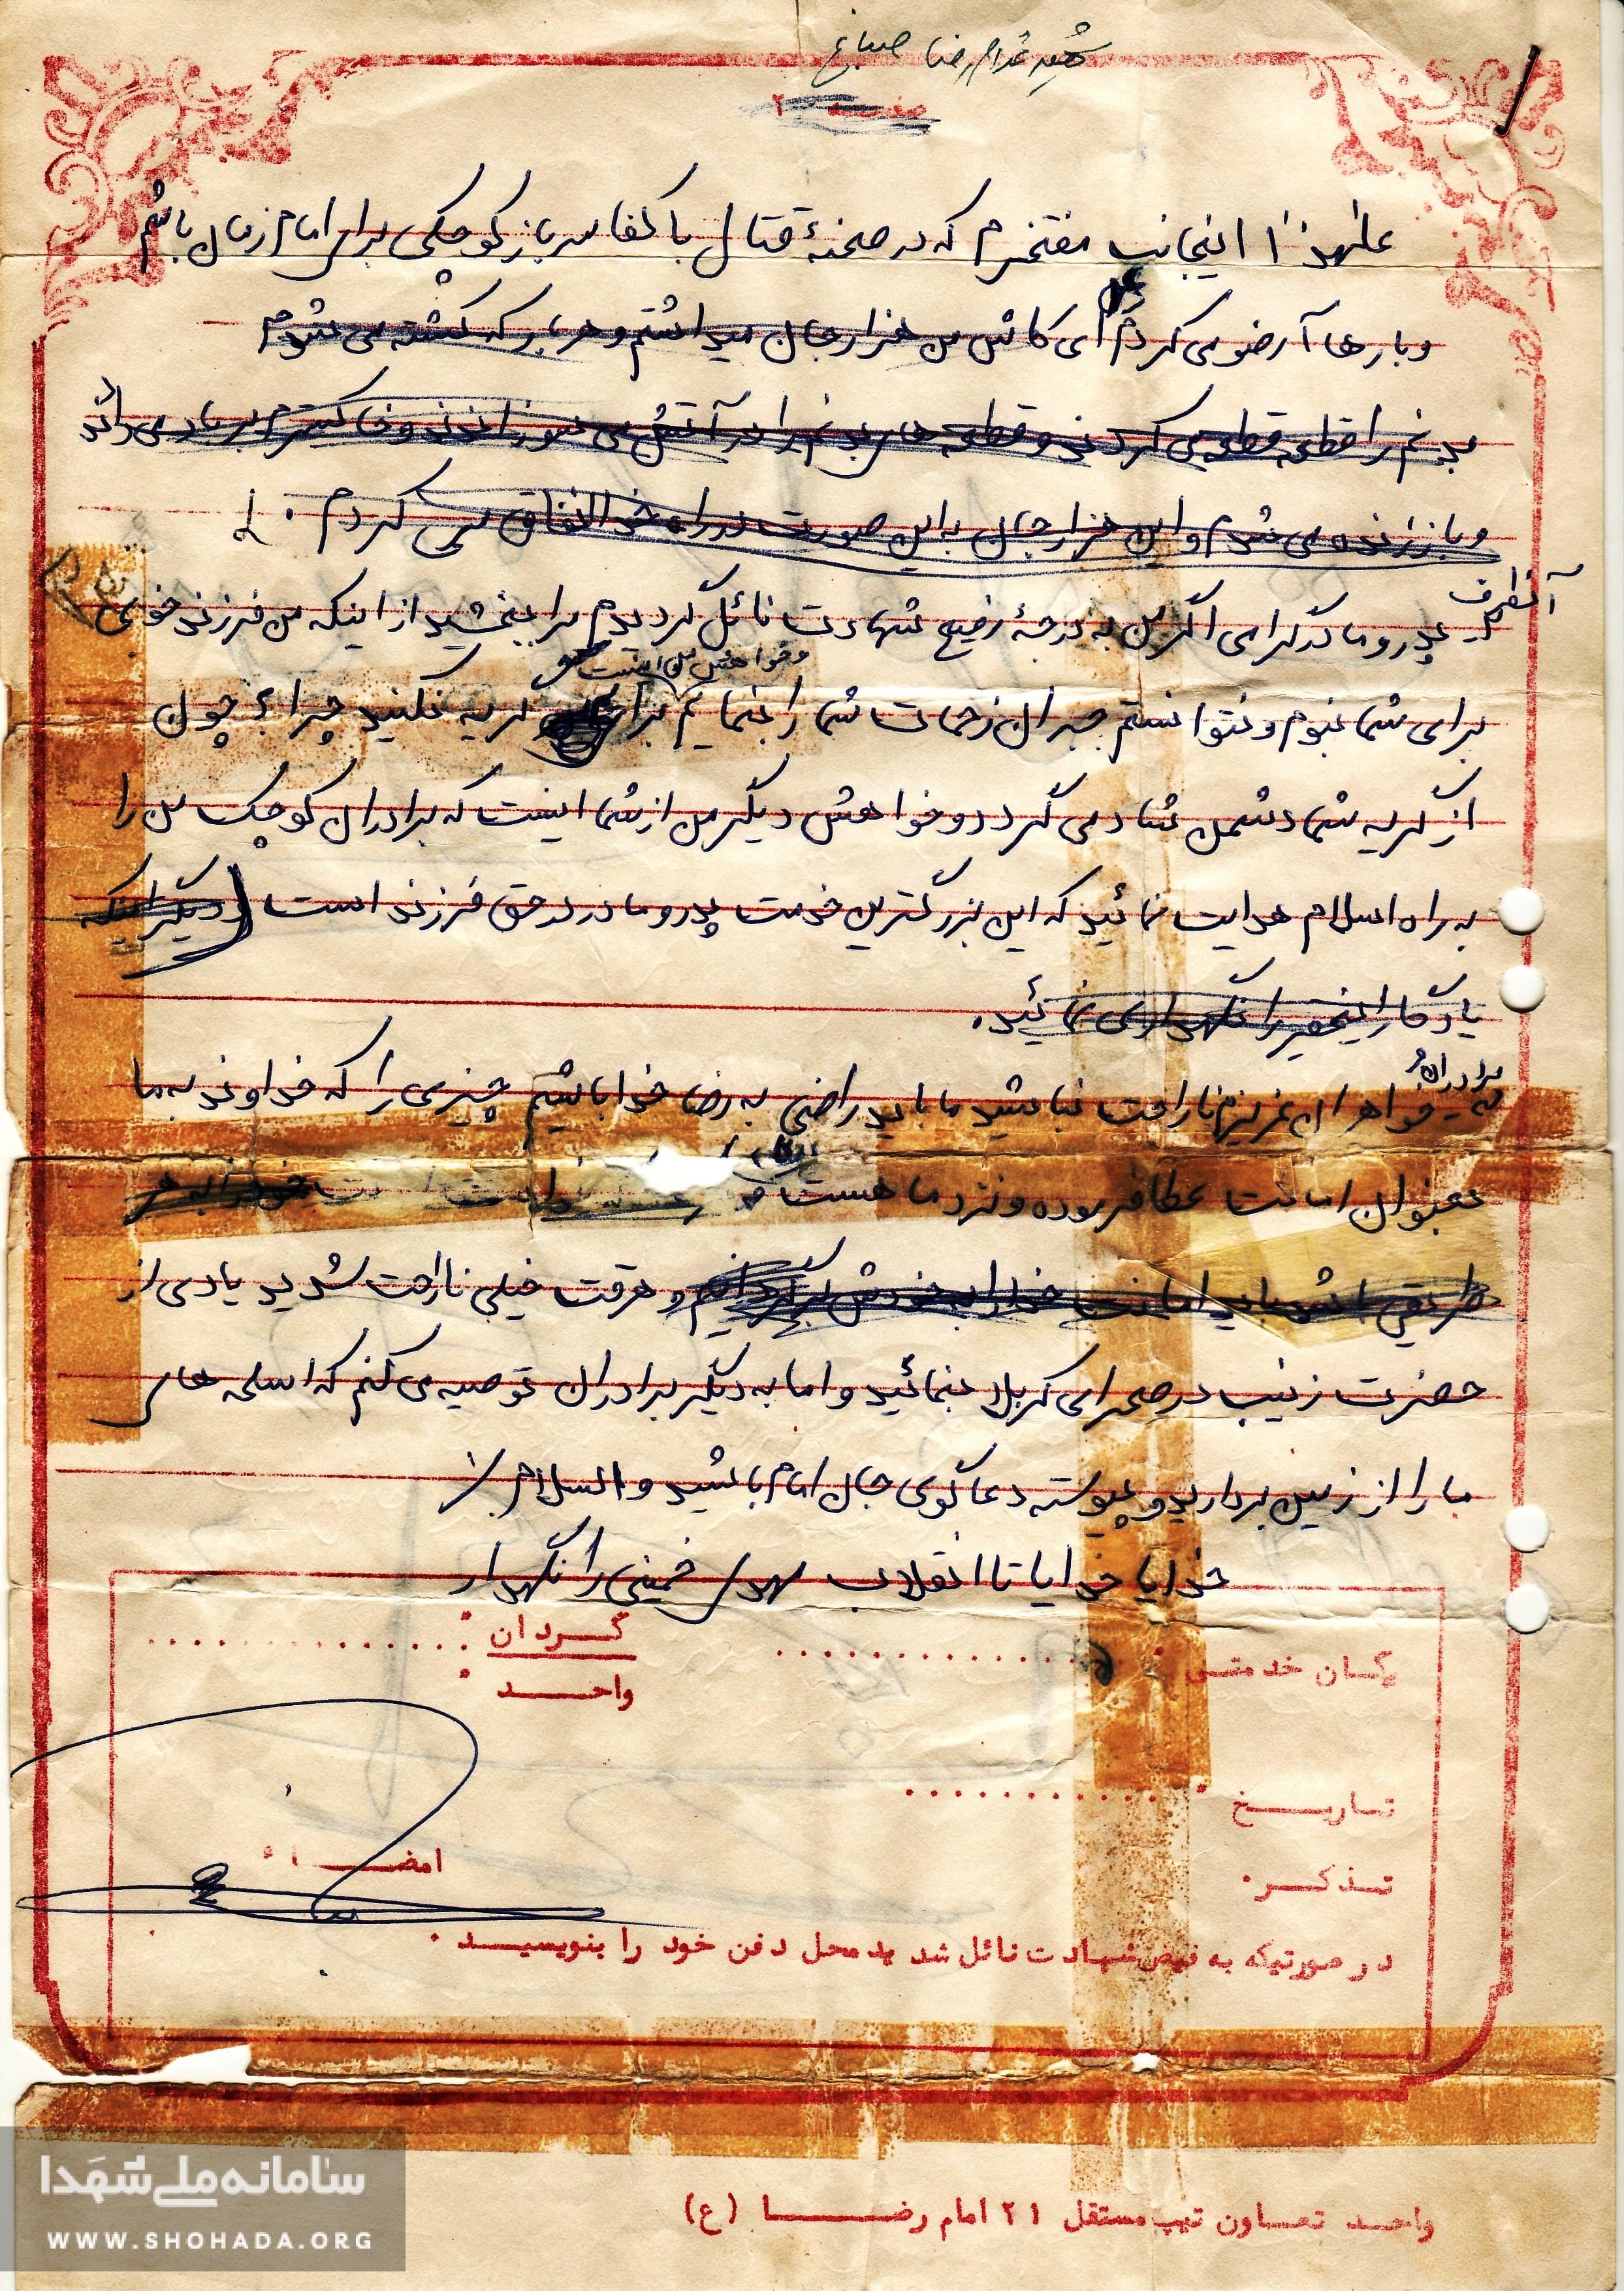 شهید غلامرضا صباغ
صفحه ۲
علیهذا اینجانب مفتخرم که در صحنهٔ قتال با کفار سرباز کوچکی برای امام زمان باشم
و بارها آرضو می کردم ای کاش من هزار جان میداشتم و هر بار که کشته می شدم
بدنم را قطعه قطعه می کردند و قطعه های بدنم را در آتش می سوزاندند و خاکسترم بر باد می دادند
و باز زنده می شدم و این هزار جان به این صورت در راه خدا انفاق می کردم .
آنطرف
پدر و مادر گرامی اگر من به درجهٔ رفیع شهادت نائل گردیدم مرا ببخشید از اینکه من فرزند خوبی
و خواهش من اینست
برای شما نبودم و نتوانستم جبران زحمات شما را بنمایم برایم گریه نکنید چرا؟ چون
از گریه شما دشمن شاد می گردد و خواهش دیگر من از شما اینست که برادران کوچک من را
به راه اسلام هدایت نمائید که این بزرگترین خدمت پدر و مادر در حق فرزند است و دیگر اینکه
یادگار اینحقیر را نگهداری نمائید.
برادران و
خواهران عزیزم ناراحت نباشید ما باید راضی به رضا خدا باشیم چیزی را که خداوند به ما
بعنوان امانت عطا فرموده و نزد ما هست
طریقی باشد باید امانت خدا را به خودش برگردانیم و هروقت خیلی ناراحت شدید یادی از
حضرت زینب در صحرای کربلا بنمائید و اما به دیگر برادران توصیه می کنم که اسلحه های
ما را از زمین بردارید و پیوسته دعاگوی جان امام باشید و السلام
خدایا خدایا تا انقلاب مهدی خمینی را نگهدار
یگان خدمتی
گردان
واحد
تاریخ
تذکر
امضاء
در صورتیکه به فیض شهادت نائل شدید محل دفن خود را بنویسید .
واحد تعاون تیپ مستقل ۲۱ امام رضا (ع)
سامانه ملی شهدا
WWW.SHOHADA.ORG